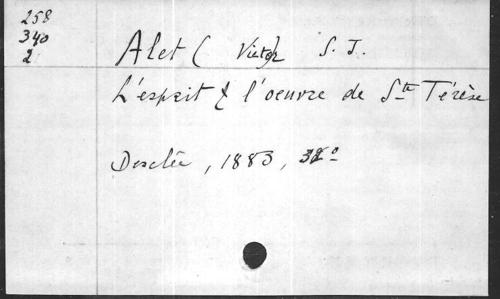 258
340
2
Alet (Victor) S. J.
L'esprit & l'oeuvre de Ste Térèse
Desclée, 1883, 32°